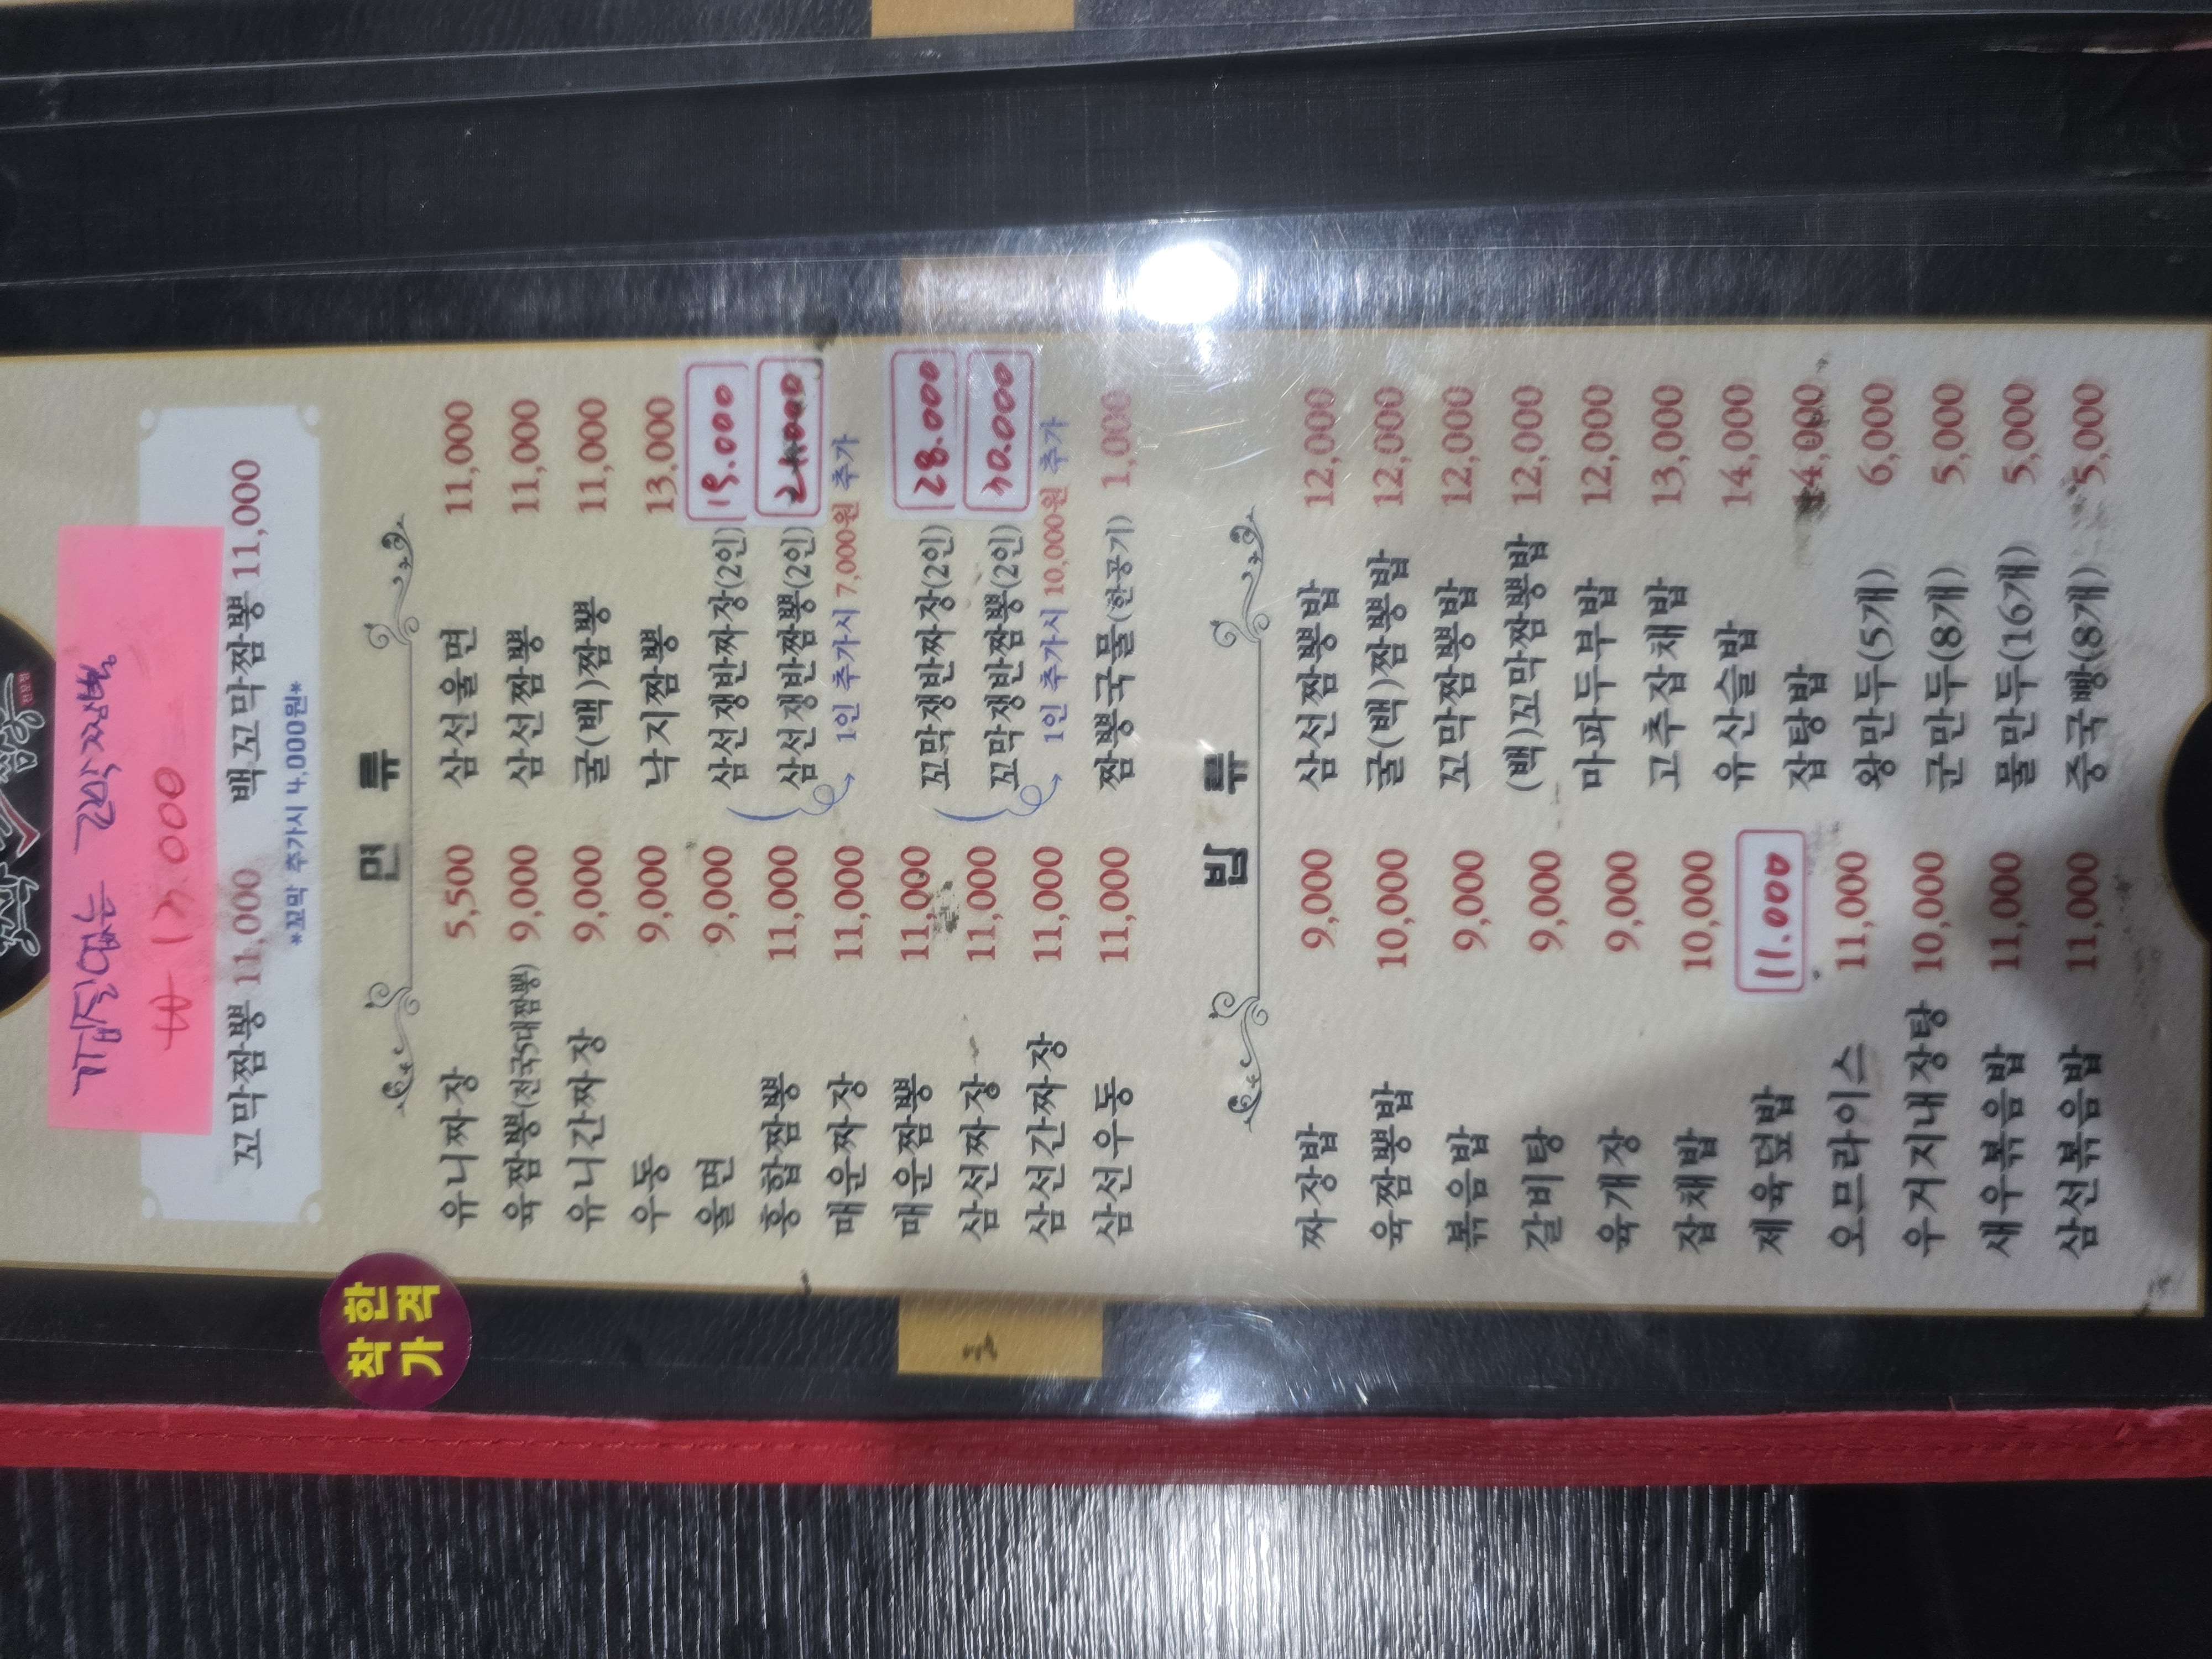 껍질없는 꼬막짬뽕
₩ 13.000
꼬막짬뽕 11,000 백꼬막짬뽕 11,000
*꼬막 추가시 4,000원*
착한
가격
면 류
유니짜장 5,500
육짬뽕(전국5대짬뽕) 9,000
유니간짜장 9,000
우동 9,000
울면 9,000
홍합짬뽕 11,000
매운짜장 11,000
매운짬뽕 11,000
삼선짜장 11,000
삼선간짜장 11,000
삼선우동 11,000
삼선울면 11,000
삼선짬뽕 11,000
굴(백)짬뽕 11,000
낙지짬뽕 13,000
삼선쟁반짜장(2인) 19.000
삼선쟁반짬뽕(2인) 21.000
1인 추가시 7,000원 추가
꼬막쟁반짜장(2인) 28.000
꼬막쟁반짬뽕(2인) 30.000
1인 추가시 10,000원 추가
짬뽕국물(한공기) 1,000
밥 류
짜장밥 9,000
육짬뽕밥 10,000
볶음밥 9,000
갈비탕 9,000
육개장 9,000
잡채밥 10,000
제육덮밥 11.000
오므라이스 11,000
우거지내장탕 10,000
새우볶음밥 11,000
삼선볶음밥 11,000
삼선짬뽕밥 12,000
굴(백)짬뽕밥 12,000
꼬막짬뽕밥 12,000
(백)꼬막짬뽕밥 12,000
마파두부밥 12,000
고추잡채밥 13,000
유산슬밥 14,000
잡탕밥 14,000
왕만두(5개) 6,000
군만두(8개) 5,000
물만두(16개) 5,000
중국빵(8개) 5,000